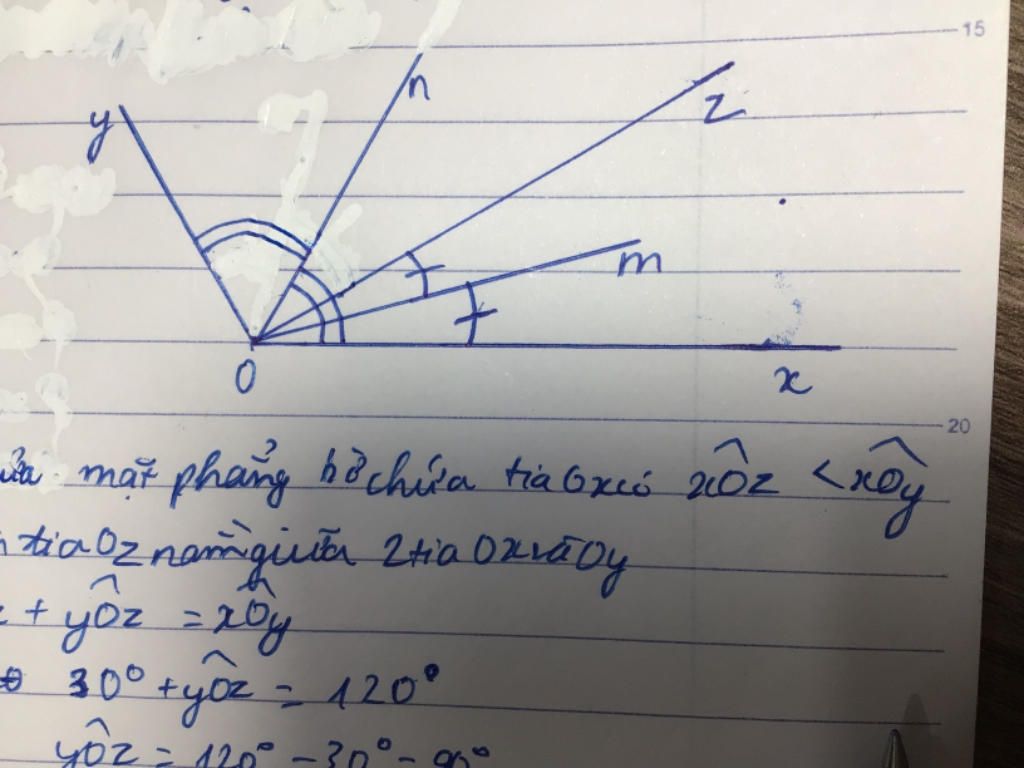 15
n
y
z
m
O
x
20
mặt phẳng bờ chứa tia Ox có xÔz < xÔy
tia Oz nằm giữa 2 tia Ox và Oy
+ yÔz = xÔy
30° + yÔz = 120°
yÔz = 120° - 30° = 90°